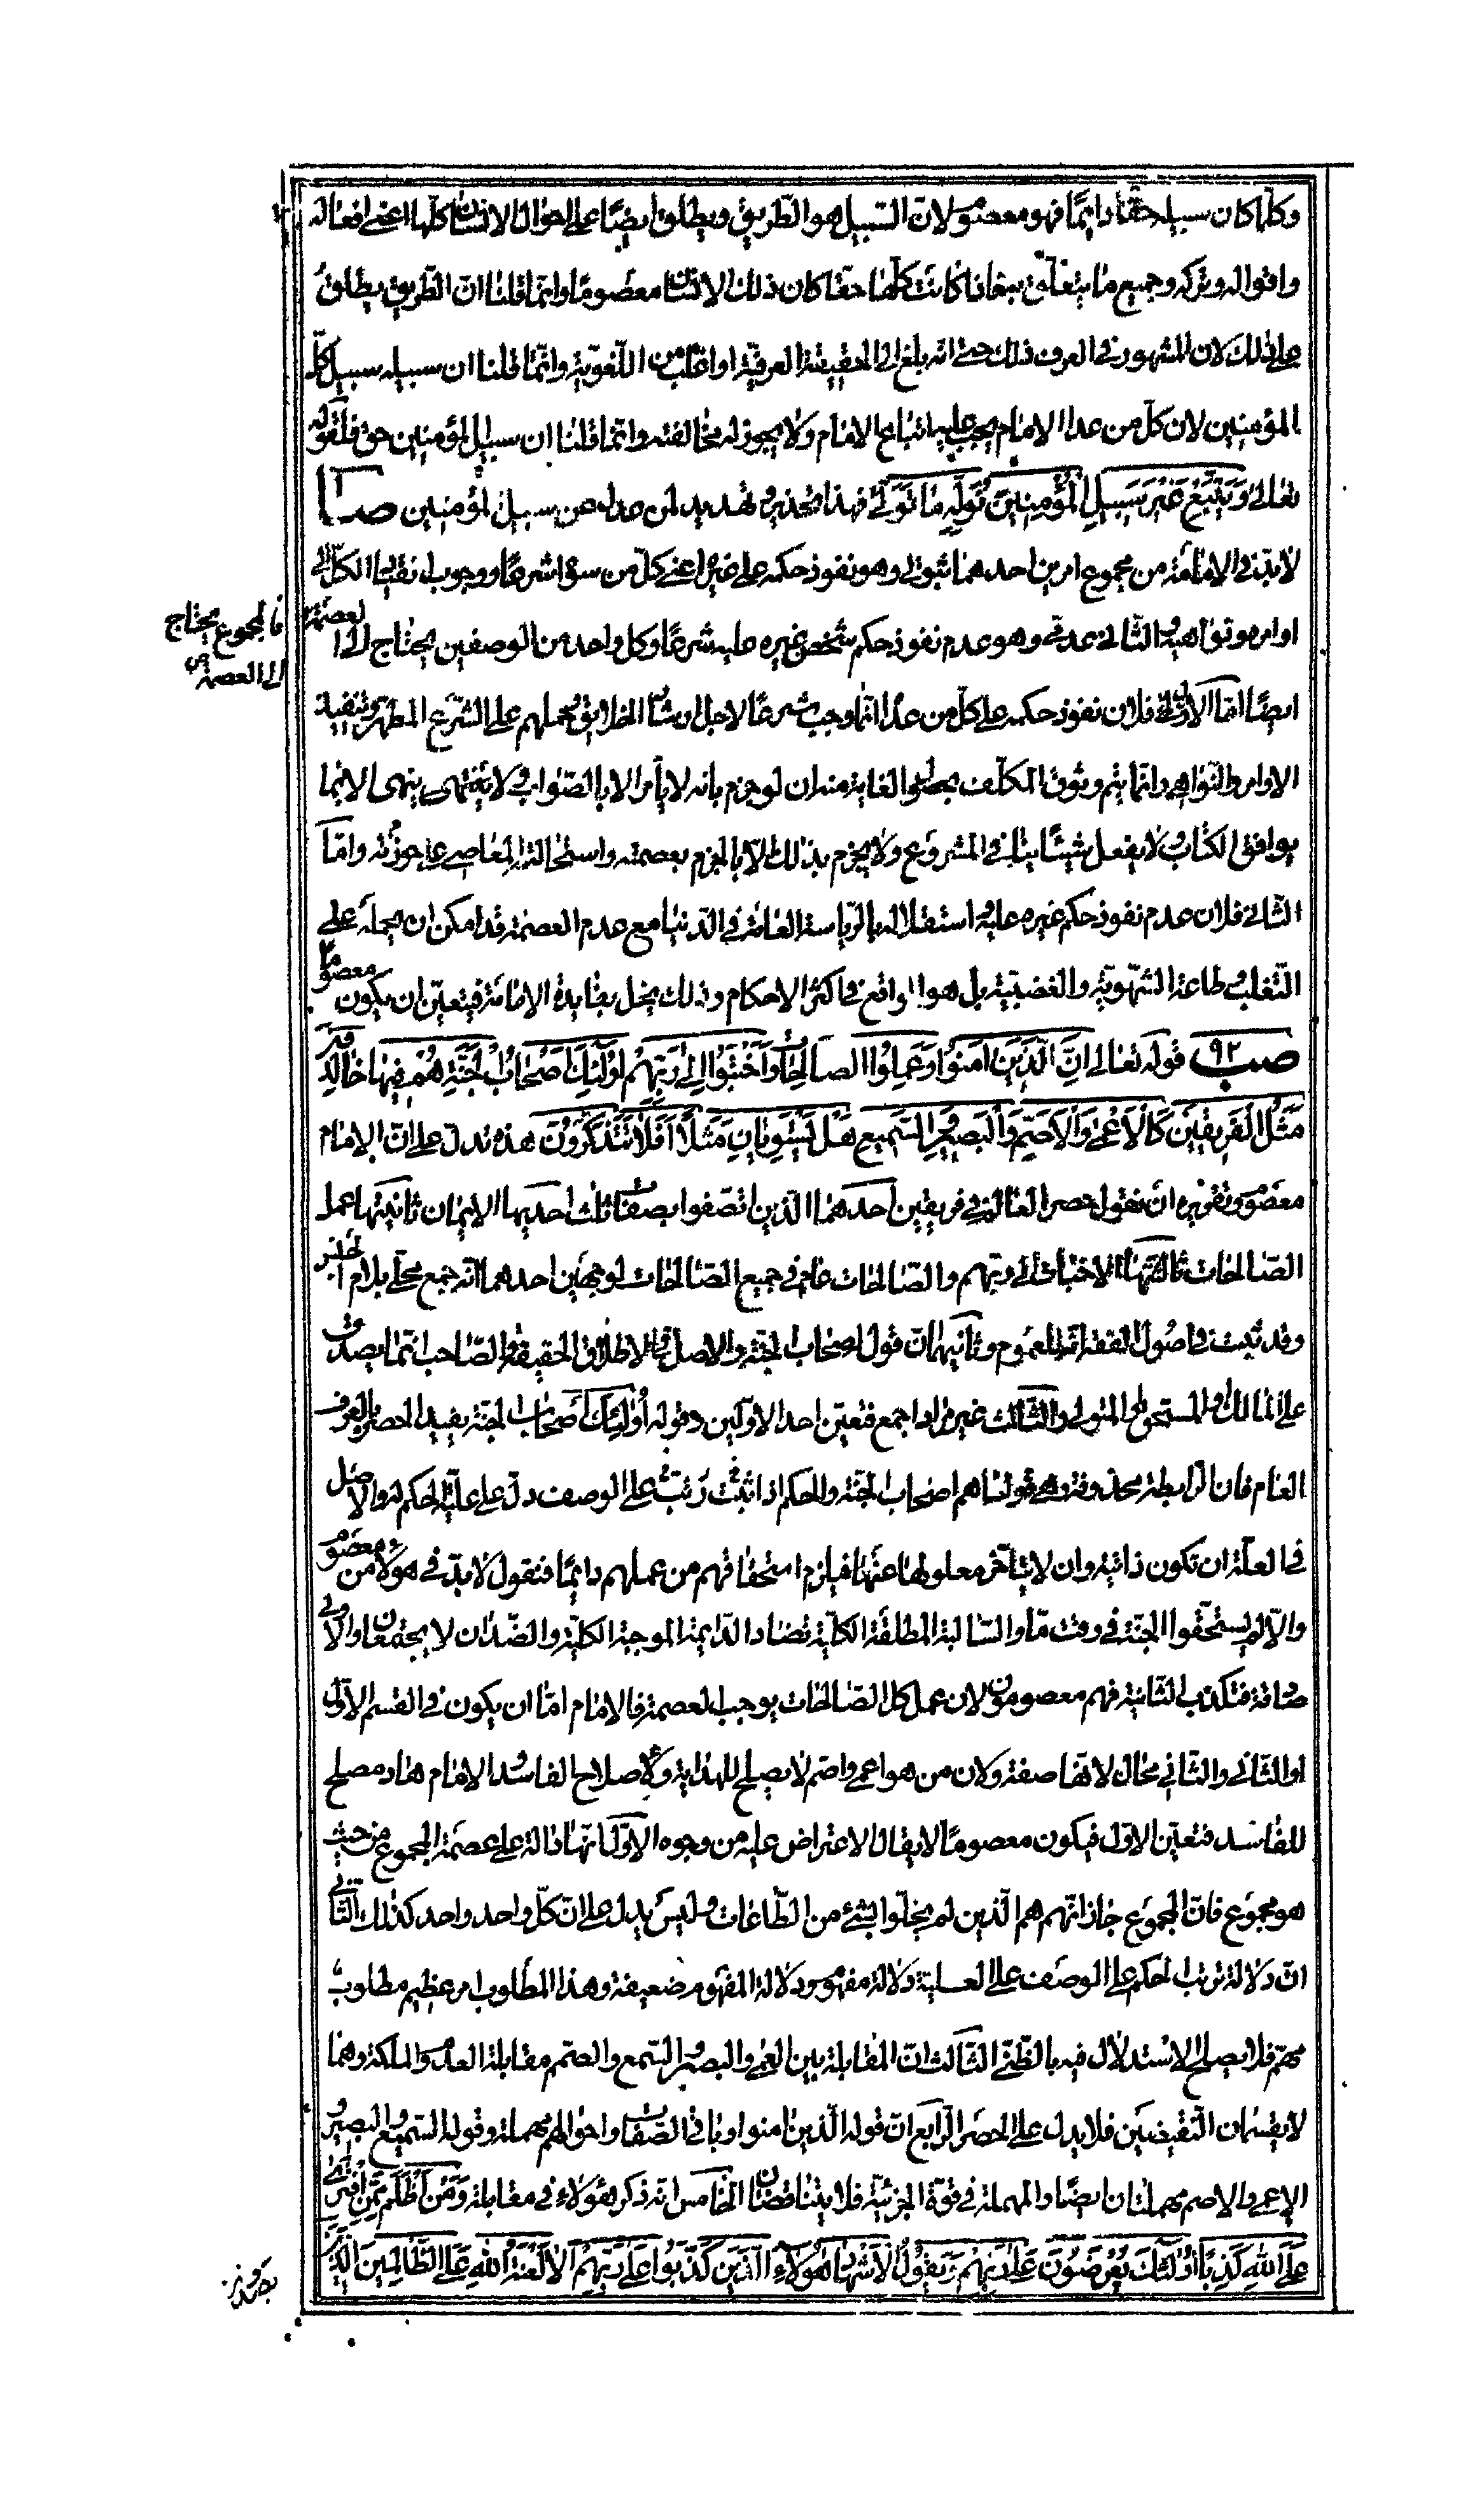 وكلما كان سبيله حقا دايمًا فهو معصوم لان السّبيل هو الطّريق ويطلق ايضًا على احوال الانسان كلها اعنى افعاله
واقواله وتركه وجميع ما يتعلّق به فاذا كانت كلّها حقّا كان ذلك الانسان معصومًا وانّما قلنا انّ الطّريق يطلق
على ذلك لان المشهور فى العرف ذلك حتى انه بلغ الى الحقيقة العرفيّة او اغلب من اللّغويّة وانّما قلنا ان سبيله سبيل كلّ
المؤمنين لان كلّ من عدا الامام يجب عليه اتباع الامام ولا يجوز له مخالفته وانّما قلنا ان سبيل المؤمنين حق فلقوله
تعالى وَيَتَّبِعْ غَيْرَ سَبيلِ الْمُؤْمِنينَ نُوَلِّهِ مَا تَوَلّى فهذا تحذير وتهديد لمن عدل عن سبيل المؤمنين صـا
لا بدّ فى الامامة من مجموع امرين احدهما ثبوتى وهو نفوذ حكمه على غيره اعنى كلّ من سواه شرعًا ووجوب انقياد الكلّ الى
اوامره ونواهيه والثانى عدمى وهو عدم نفوذ حكم شخص غيره عليه شرعًا وكل واحد من الوصفين يحتاج الى العصمة
فالمجموع يحتاج
الى العصمة
ايضًا امّا الاول فلان نفوذ حكمه على كلّ من عداه انّما وجب شرعًا لاجل ارشاد الخلايق وحملهم على الشّرع المطهر وتنفيذ
الاوامر والنّواهى وانّما يتم وثوق المكلّف بحصول الغاية منه ان لو جزم بانه لا يأمر الا بالصّواب ولا ينهى الا بما
يوافق الكتاب ولا يفعل شيئًا ينافى المشروع ولا يجزم بذلك الّا بالجزم بعصمته واستحالة المعاصى عليه وامّا
الثّانى فلان عدم نفوذ حكم غيره عليه واستقلاله بالرّياسة العامّة فى الدّنيا مع عدم العصمة قد امكن ان يحمله على
التّغلب وطاعة الشّهويّة والغضبيّة بل هو الواقع فى اكثر الاحكام وذلك يخل بفايدة الامامة فيتعيّن ان يكون معصومًا
صب ٩٢ قوله تعالى اِنَّ الَّذينَ امَنُوا وَعَمِلُوا الصالِحاتِ وَاَخْبَتُوا اِلى رَبِّهِمْ اُولئِكَ اَصْحابُ الْجَنَّةِ هُمْ فيها خالِدُونَ
مَثَلُ الْفَريقَيْنِ كَالْاَعْمى وَالْاَصَمِّ وَالْبَصيرِ وَالسَّميعِ هَلْ يَسْتَوِيانِ مَثَلًا اَفَلا تَتَذَكَّرُونَ هذه تدلّ على انّ الامام
معصوم وتقريره ان نقول حصر العالم فى فريقين احدهما الذين اتصّفوا بصفات ثلث احديها الايمان ثانيتها عمل
الصّالحات ثالثتها الاخبات الى ربّهم والصّالحات عام فى جميع الصّالحات لوجهين احدهما انّه جمع محلّى بلام الجنس
وقد ثبت فى اصول الفقه انّه للعموم وثانيهما ان قول اصحاب الجنّة والاصل فى الاطلاق الحقيقة والصّاحب انّما يصدق
على المالك او المستحق او المتولى والثّالث غير مراد اجمع فتعيّن احد الاوّلين وقوله اُولئِكَ اَصحاب الجنّة يفيد الحصر بالعرف
العام فان الرابطة محذوفة وهى قولنا هم اصحاب الجنّة والحكم اذا ثبت رتب على الوصف دلّ على علّيّة الحكم له والاصل
فى العلّة ان تكون ذاتيّة وان لا يتأخّر معلولها عنها فيلزم استحقاقهم من عملهم دايمًا فنقول لا بدّ فى هؤلاء من معصوم
والّا لم يستحقّوا الجنّة فى وقت مّا والسّالبة المطلقة الكليّة تضاد الدّايمة الموجبة الكليّة والضّدان لا يجتمعان والاولى
صادقة فتكذب الثّانية فهم معصومون لان عمل كل الصّالحات يوجب العصمة فالامام امّا ان يكون فى القسم الاوّل
او الثّانى والثّانى محال لانّها صفة ولان من هو اعمى واصم لا يصلح للهداية ولا لاصلاح الفاسد والامام هاد مصلح
للفاسد فتعيّن الاوّل فيكون معصومًا لا يقال الاعتراض عليه من وجوه الاوّل انّها دالة على عصمة المجموع من حيث
هو مجموع فانّ المجموع جاز انّهم هم الّذين لم يخلّوا بشئ من الطّاعات وليس يدل على انّ كلّ واحد واحد كذلك الثّانى
انّ دلالة ترتب الحكم على الوصف على العلية دلالة مفهوم ودلالة المفهوم ضعيفة وهذا المطلوب امر عظيم مطلوب
مهمّ فلا يصلح الاستدلال فيه بالظّنّى الثّالث انّ المقابلة بين العمى والبصر والسّمع والصّمم مقابلة العدم والملكة وهما
لا يقسمان النّقيضين فلا يدل على الحصر الرّابع انّ قوله الّذين امنوا وباقى الصّفات واحوالهم مهملة وقوله السّميع والبصير و
الاعمى والاصم مهملتان ايضًا والمهملة فى قوّة الجزئيّة فلا يتناقضان الخامس انّه ذكر هؤلاء فى مقابلة وَمَنْ اَظْلَمُ مِمَّنِ افْتَرى
عَلَى اللهِ كَذِبًا اُولئِكَ يُعْرَضُونَ عَلى رَبِّهِمْ وَيَقُولُ الْاَشْهادُ هؤُلاءِ الَّذينَ كَذَبُوا عَلى رَبِّهِمْ اَلا لَعْنَةُ اللهِ عَلَى الظّالِمينَ الَّذينَ
يصدون